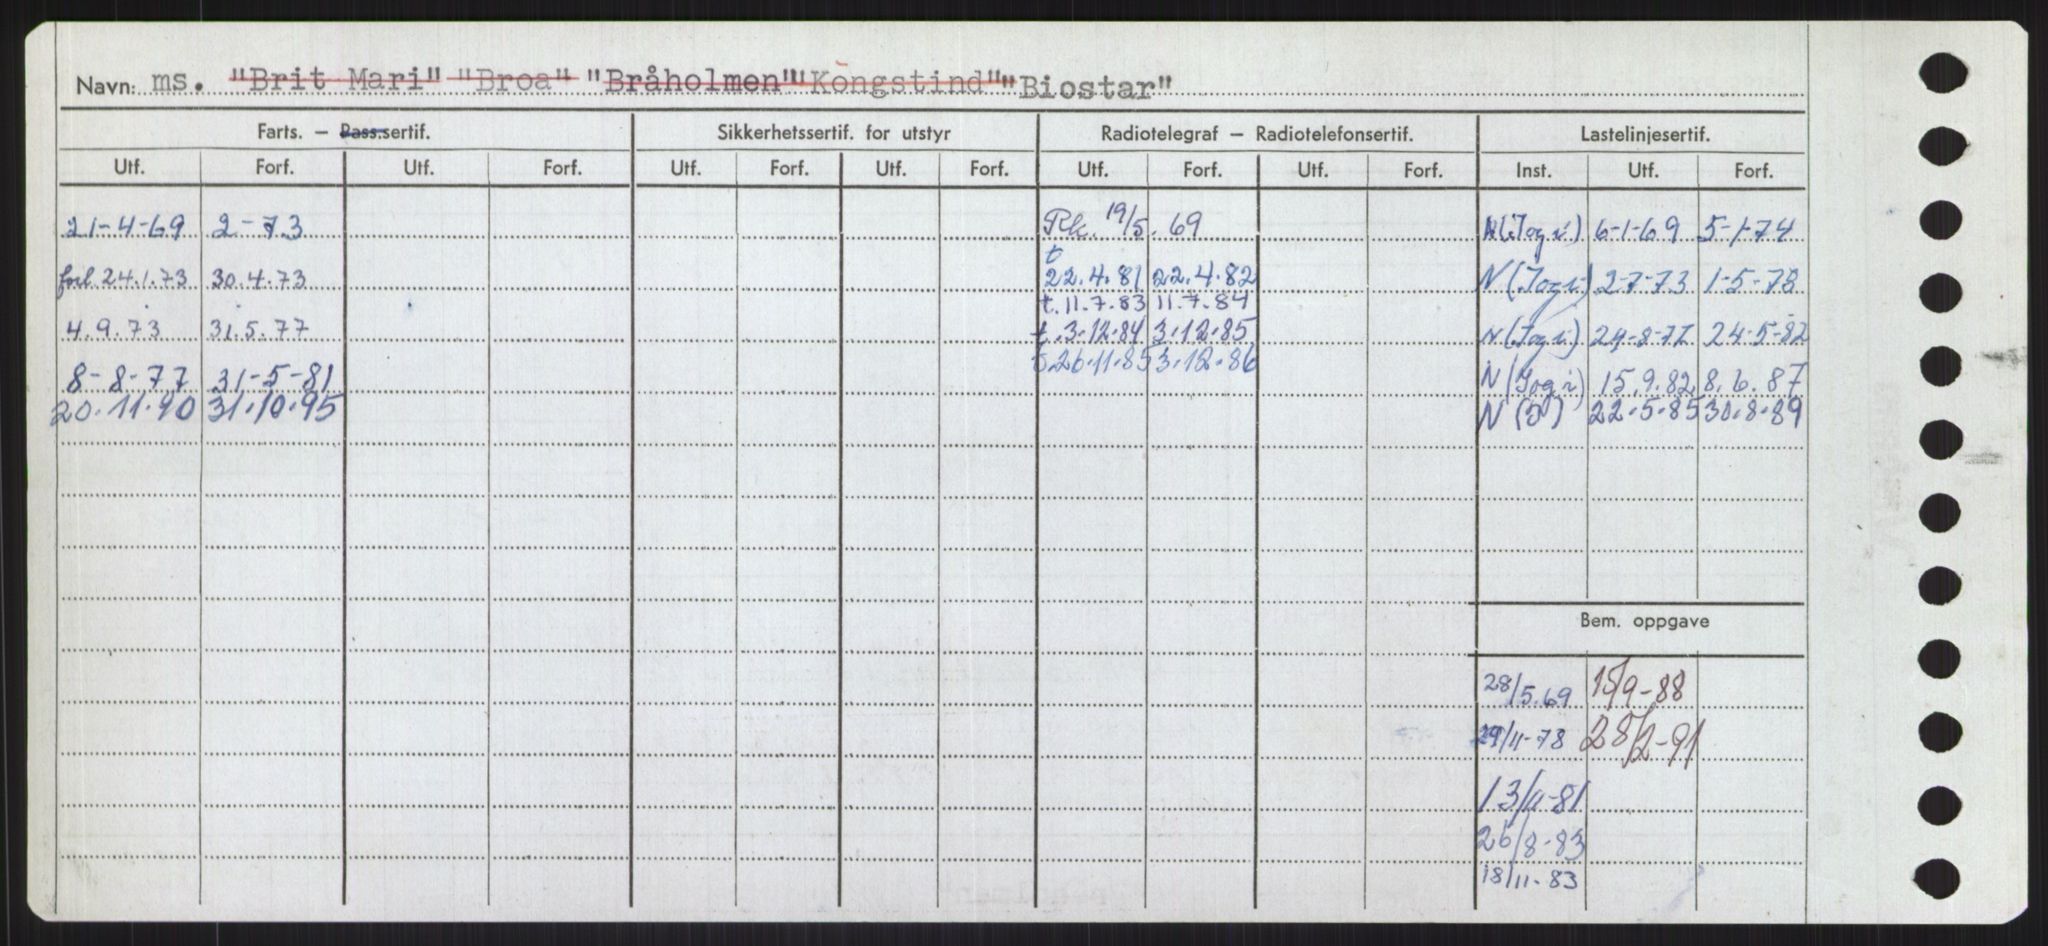 Navn: ms. "Brit Mari" "Broa" "Bråholmen" "Kongstind" "Biostar"
Farts. – Pass.sertif. Sikkerhetssertif. for utstyr Radiotelegraf – Radiotelefonsertif. Lastelinjesertif.
Utf. Forf. Utf. Forf. Utf. Forf. Utf. Forf. Utf. Forf. Utf. Forf. Inst. Utf. Forf.
21-4-69 2-73 Rk. 19/5.69 N(Jogi) 6-1-69 5-1-74
t
forl 24.1.73 30.4.73 22.4.81 22.4.82 N(Jogi) 2-7-73 1-5-78
t.11.7.83 11.7.84
4.9.73 31.5.77 t.3.12.84 3.12.85 N(Jogi) 24-5-82
t.26.11.85 3.12.86
8-8-77 31-5-81 N(Jogi) 15.9.82 8.6.87
20.11.90 31.10.95 N 22.5.85 30.8.89
Bem. oppgave
28/5.69 15/9-88
29/11-78 28/2-91
13/11-81
26/8-83
18/11-83